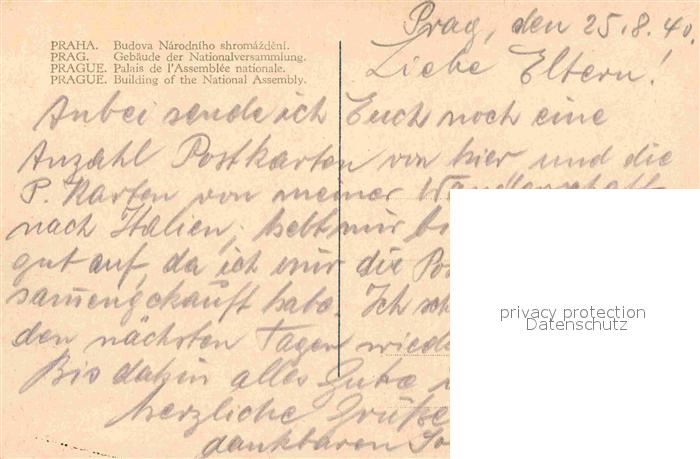 PRAHA. Budova Národního shromáždění.
PRAG. Gebäude der Nationalversammlung.
PRAGUE. Palais de l'Assemblée nationale.
PRAGUE. Building of the National Assembly.
Prag, den 25.8.40.
Liebe Eltern!
Anbei sende ich Euch noch eine
Anzahl Postkarten von hier und die
P. Karten von meiner
nach Italien, hebt mir
gut auf, da ich mir die
zusamengekauft habe. Ich
den nächsten Tagen
Bis dahin alles Gute
herzliche Grüße
dankbaren
privacy protection
Datenschutz